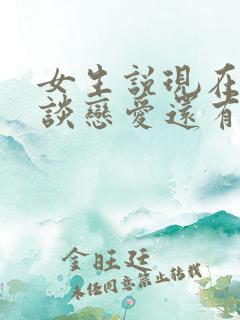 女生說現在
談戀愛還有
金旺廷
未经同意禁止转载